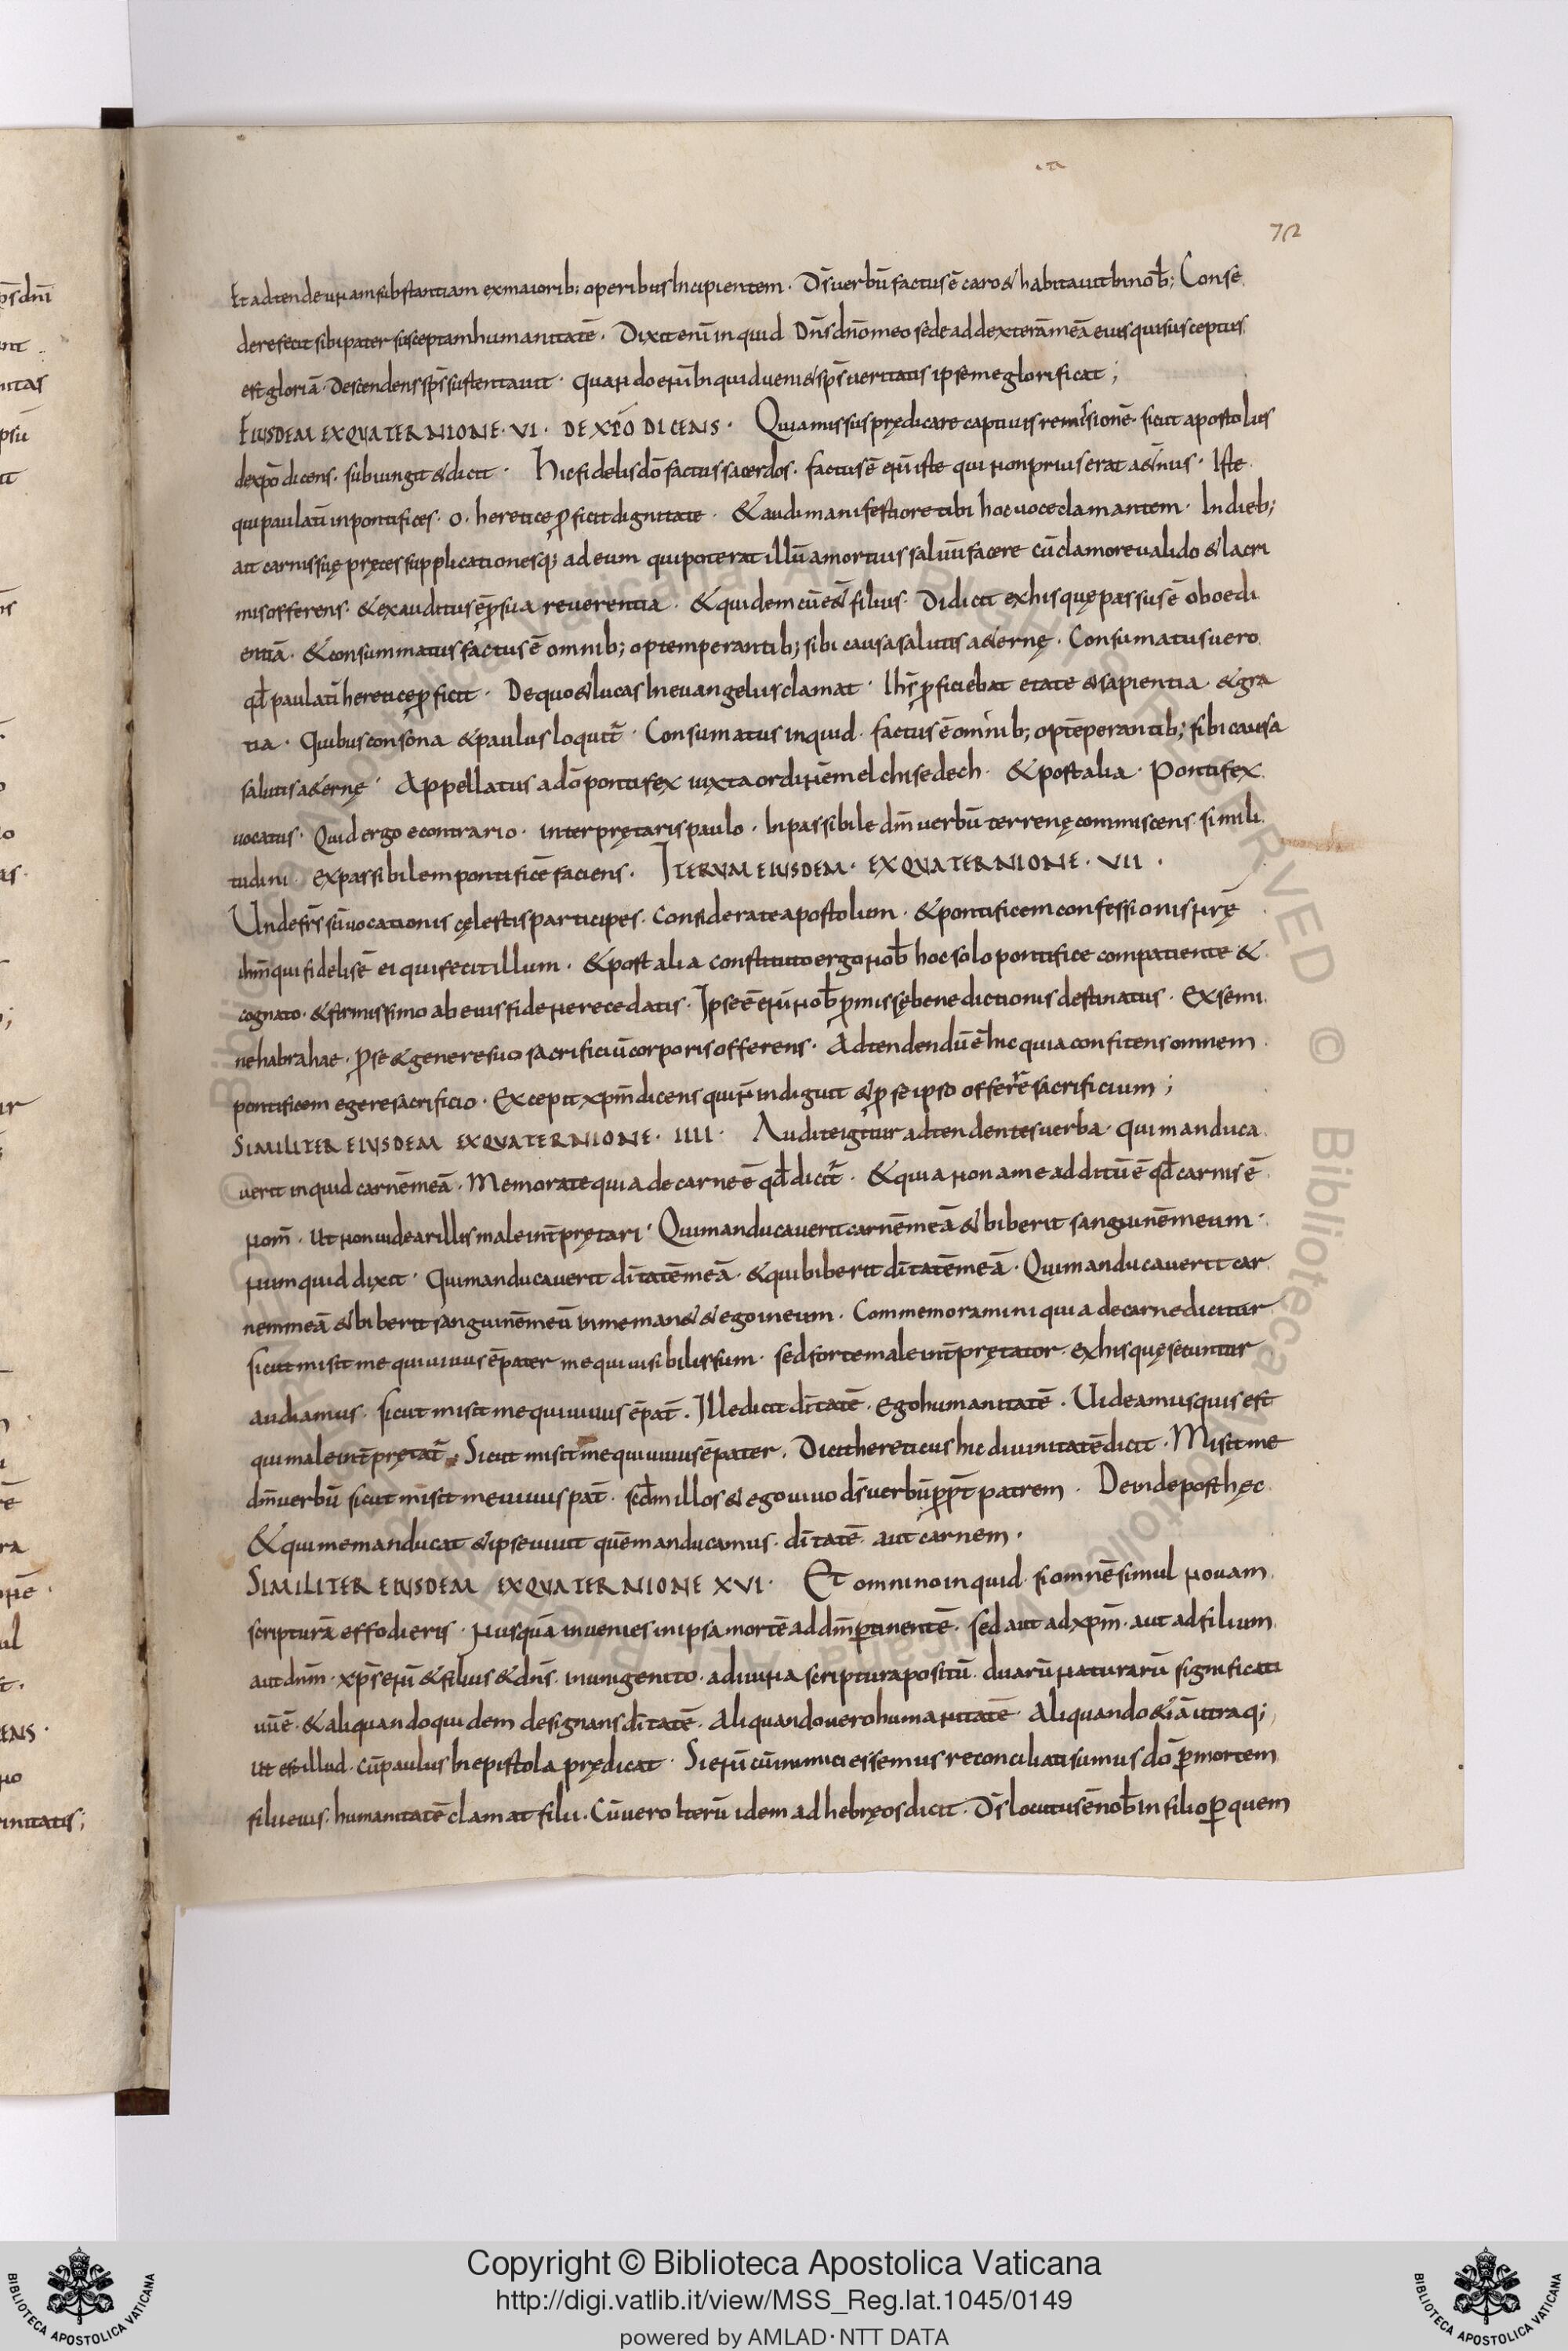 72
Et adtende unam substantiam ex maiorib; operibus Incipientem · Dš uerbū factus ē caro & habitauit In nob̄; Conse
dere fecit sibi pater susceptam humanitatē · Dixit enī inquid Dñs dño meo sede ad dexterā meā eius qui susceptus
est gloriā · Descendens sp̄s sustentauit · quando enī Inquid uenis& sp̄s ueritatis ipse me glorificat;
EIUSDEM EX QUATERNIONE · VI · DE XP̄O DICENS · Quia missus prędicare captiuis remissionē · sicut apostolus
de xp̄o dicens · subiungit & dicit · Hic fidelis dō factus sacerdos · factus ē enī iste qui non prius erat a&nus · Iste
qui paulatī in pontifices · o · heretice ꝓficit dignitate · & audi manifestiore tibi hoc uoce clamantem · In dieb;
ait carnis suę pręces supplicationesq; ad eum qui poterat illū a mortuis saluū facere cū clamore ualido & lacri
mis offerens · & exauditus ē ꝓ sua reuerentia · & quidem cū ess& filius · Didicit ex his quę passus ē oboedi
entiā · & consummatus factus ē omnib; optemperantib; sibi causa salutis a&ernę · Consumatus uero
qd̄ paulatī heretice ꝓficit · De quo & lucas In euangeliis clamat · Ih̄s ꝓficiebat etate & sapientia & gra
tia · Quibus consona & paulus loquit̄ · Consumatus inquid · factus ē omnib; optēperantib; sibi causa
salutis a&ernę · Appellatus a dō pontifex iuxta ordinē melchisedech · & post alia · Pontifex
uocatus · Quid ergo e contrario · interprętaris paulo · Inpassibile dm̄ uerbū terrenę commiscens simili
tudini · ex passibilem pontificē faciens · ITERUM EIUSDEM · EX QUATERNIONE · VII ·
Unde fr̄s sc̄i uocationis cęlestis participes · Considerate apostolum · & pontificem confessionis nr̄ę
ihm̄ qui fidelis ē ei qui fecit illum · & post alia constituto ergo nob̄ hoc solo pontifice compatiente &
cognato · & firmissimo ab eius fide ne recedatis · Ipse ē enī nob̄ ꝓmissę benedictionis destinatus · Ex semi
ne habrahae · ꝓ se & genere suo sacrificiū corporis offerens · Adtendendū ē hic quia confitens omnem
pontificem egere sacrificio · Excepit xpm̄ dicens qui n̄ indiguit & ꝓ se ipso offerre sacrificium;
SIMILITER EIUSDEM EX QUATERNIONE · IIII · Audite igitur adtendentes uerba · qui manduca
uerit inquid carnē meā · Memorate quia de carne ē qd̄ dicit̄ · & quia non a me additū ē qd̄ carnis ē
nom̄ · ut non uidear illis male int̄prętari · Qui manducauerit carnē meā & biberit sanguinē meum ·
numquid dixit · Qui manducauerit dītatē meā · & qui biberit dītatē meā · Qui manducauerit car
nem meā & biberit sanguinē meū in me man& & ego in eum · Commemoramini quia de carne dicitur
sicut misit me qui uiuus ē pater me qui uisibilis sum · sed forte male int̄prętator · ex his quę secuntur
audiamus · sicut misit me qui uiuus ē pat̄ · Ille dicit dītatē · Ego humanitatē · Uideamus quis est
qui male int̄prętat̄ · Sicut misit me qui uiuus ē pater · Dicit hereticus hic diuinitatē dicit · Misit me
dm̄ uerbū sicut misit me uiuus pat̄ · scd̄m illos & ego uiuo dš uerbū ꝓpt̄ patrem · Deinde post hęc
& qui me manducat & ipse uiuit quē manducamus · dītatē aut carnem ·
SIMILITER EIUSDEM EX QUATERNIONE XVI · Et omnino inquid · si omnē simul nouam
scripturā effodieris · nusquā inuenies in ipsa mortē ad dm̄ ꝑtinentē · sed aut ad xpm̄ · aut ad filium
aut dnm̄ · xp̄s enī & filius & dn̄s · in unigenito · a diuina scriptura positū · duarū naturarū significati
uū ē · & aliquando quidem designans dītatē · Aliquando uero humanitatē · Aliquando & iā utraq;
ut est illud · cū paulus In epistola prędicat · Si enī cū inimici essemus reconciliati sumus dō ꝑ mortem
filii eius · humanitatē clamat filii · Cū uero Iterū idem ad hebręos dicit · Dš locutus ē nob̄ in filio ꝑ quem
Copyright © Biblioteca Apostolica Vaticana
http://digi.vatlib.it/view/MSS_Reg.lat.1045/0149
powered by AMLAD·NTT DATA
BIBLIOTECA APOSTOLICA VATICANA
BIBLIOTECA APOSTOLICA VATICANA